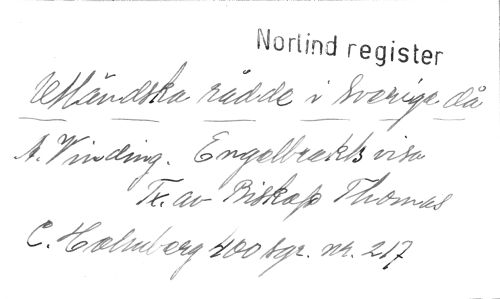 Norlind register
Utländska rådde i Sverige då
A. Vinding. Engelbrekts visa
Tx. av Biskop Thomas
C. Holmberg 400 sgr. nr. 217